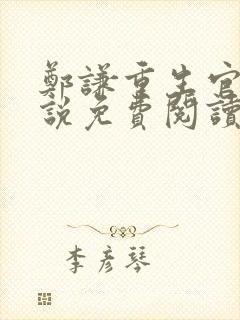 鄭謙重生官
說免費閱讀
李彥琴